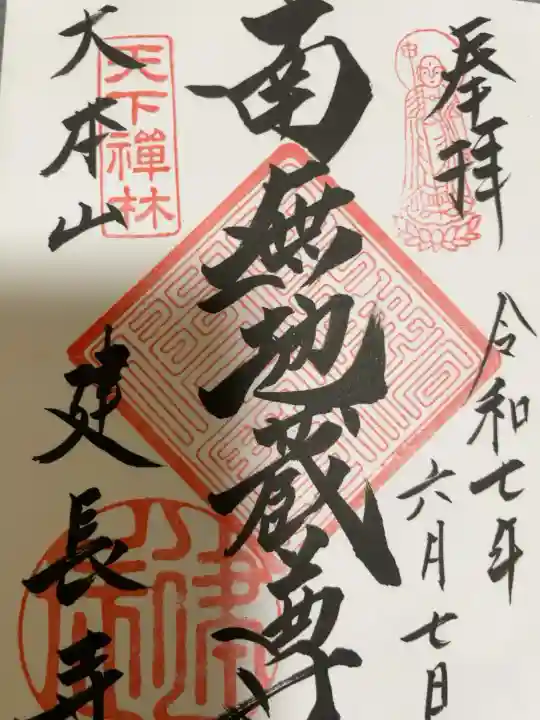 奉拝
令和七年
六月七日
南無地蔵尊
天下禪林
大本山
建長寺